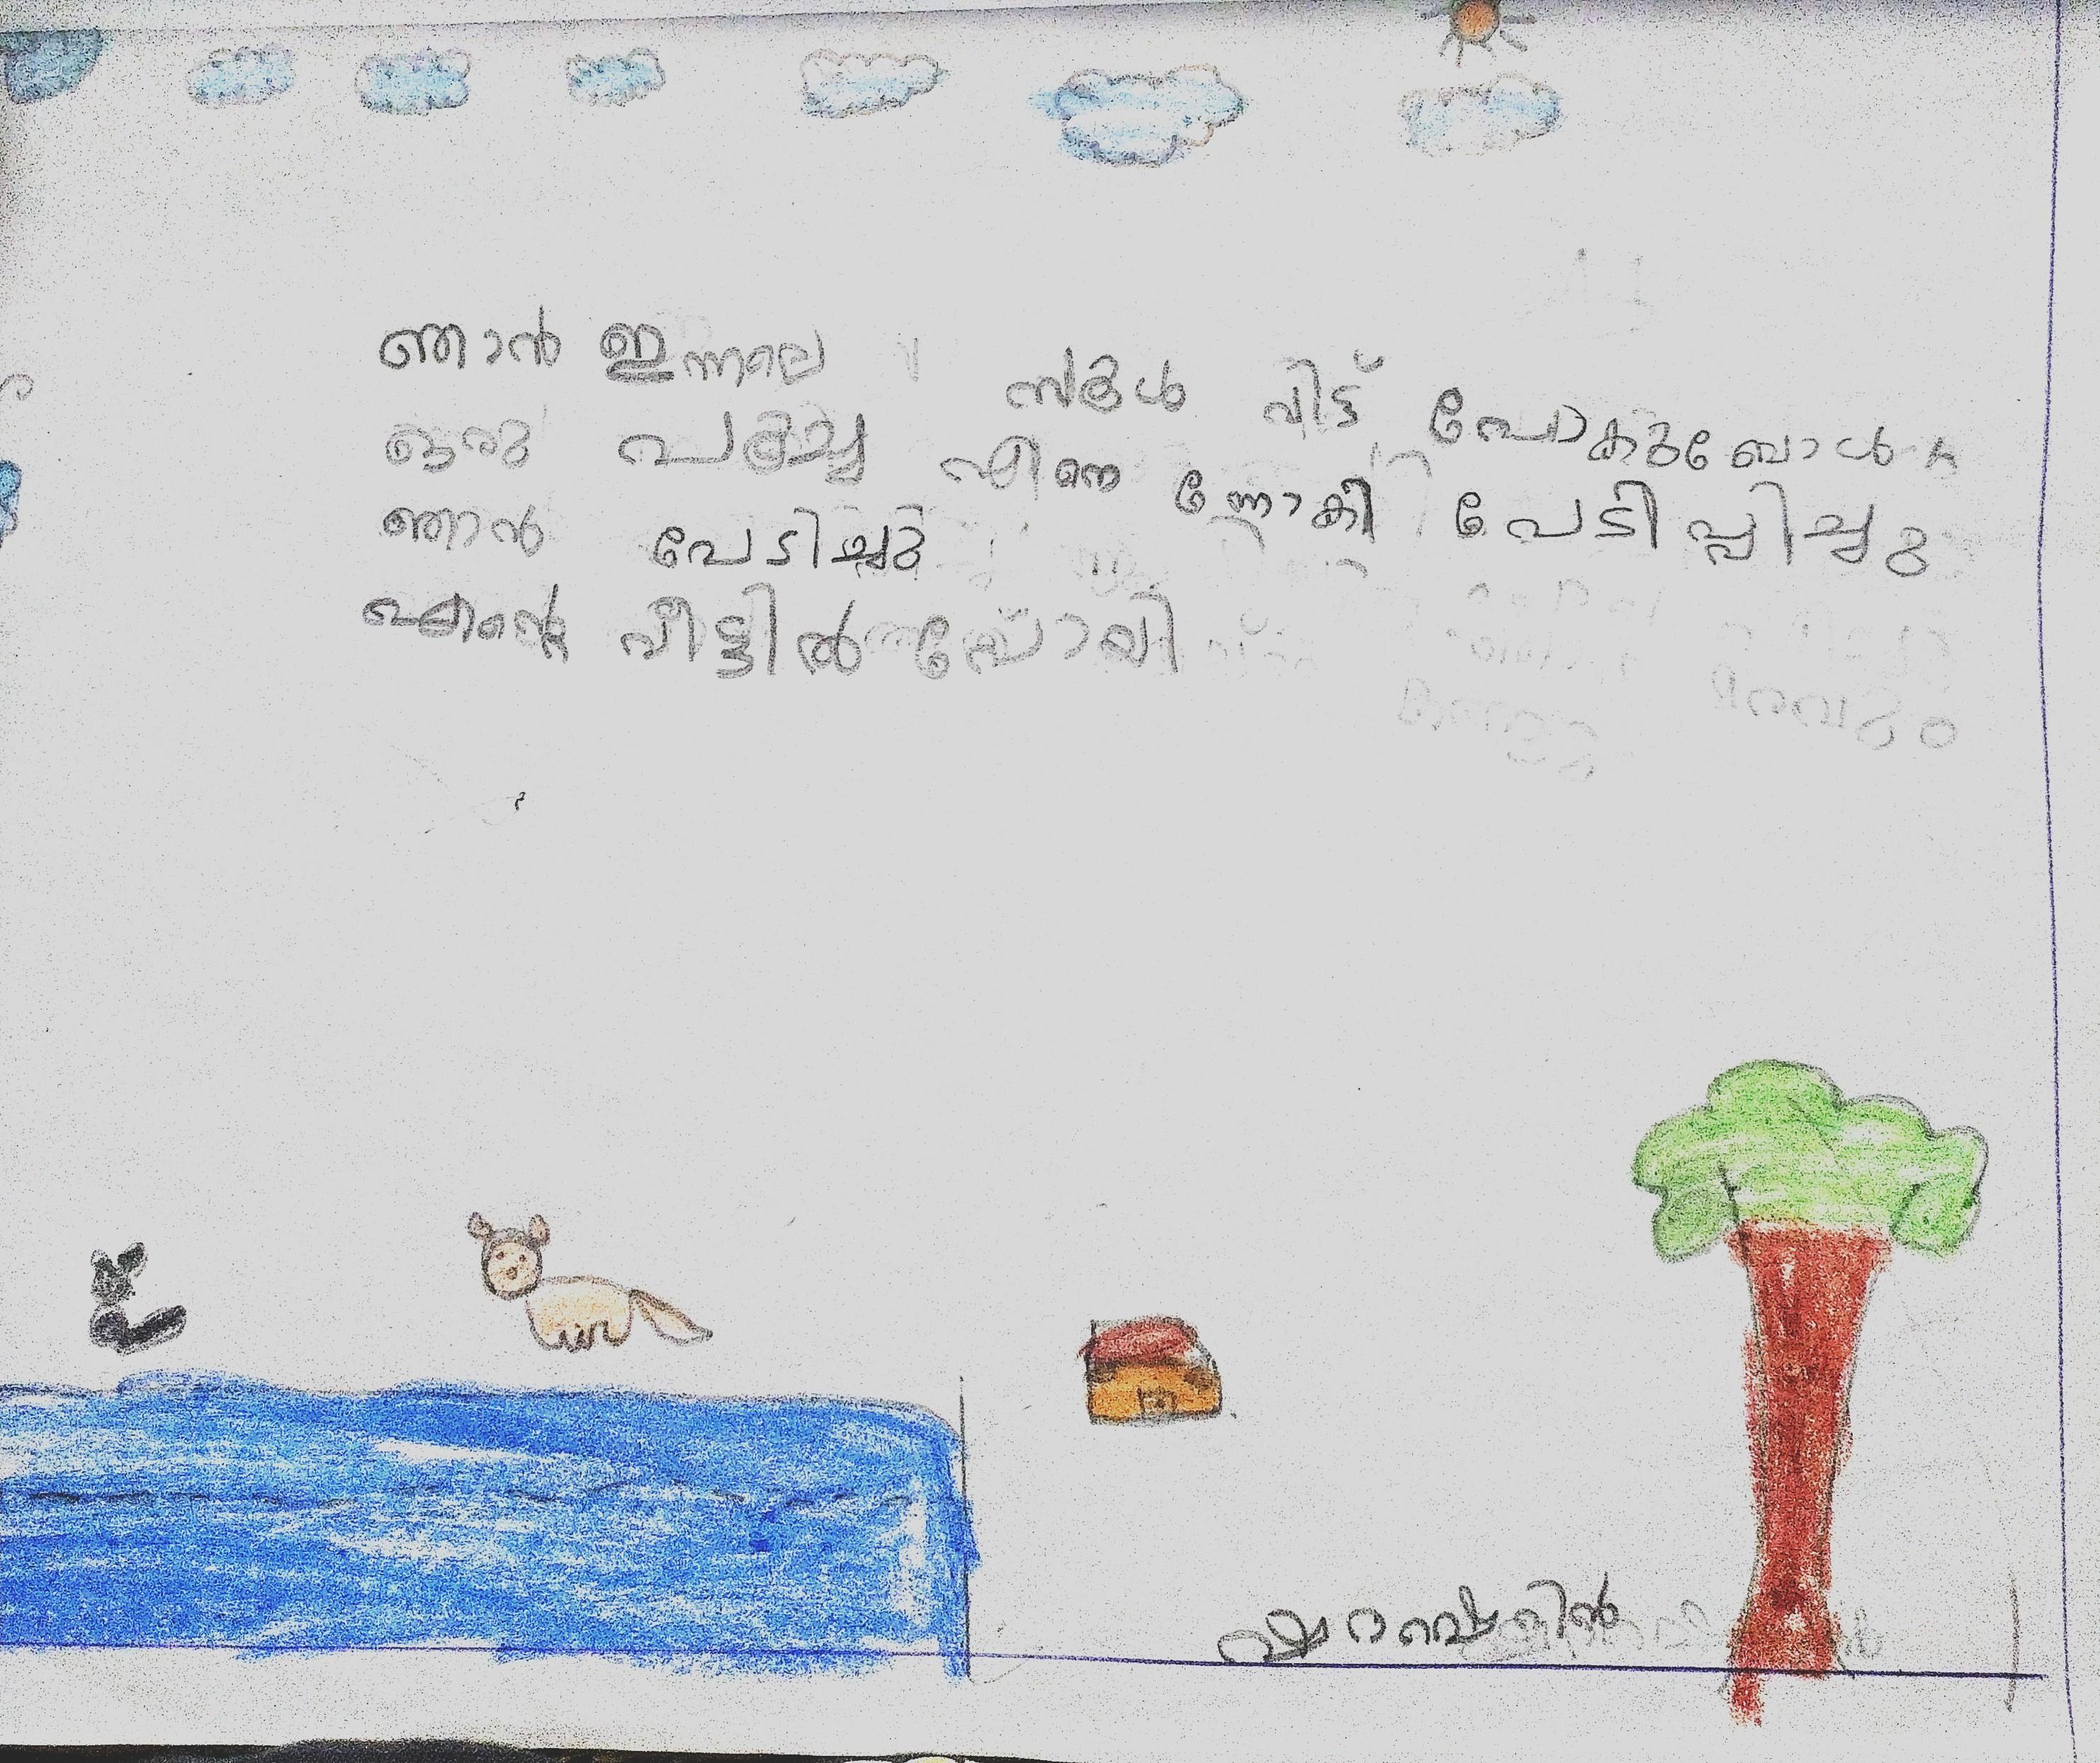 ഞാൻ ഇന്നലെ സ്കൂൾ വിട്ട് പോകുബോൾ
ഒരു പൂച്ച എന്നെ നോക്കി പേടിപ്പിച്ചു
ഞാൻ പേടിച്ചു
എന്റെ വീട്ടിൽ പോയി